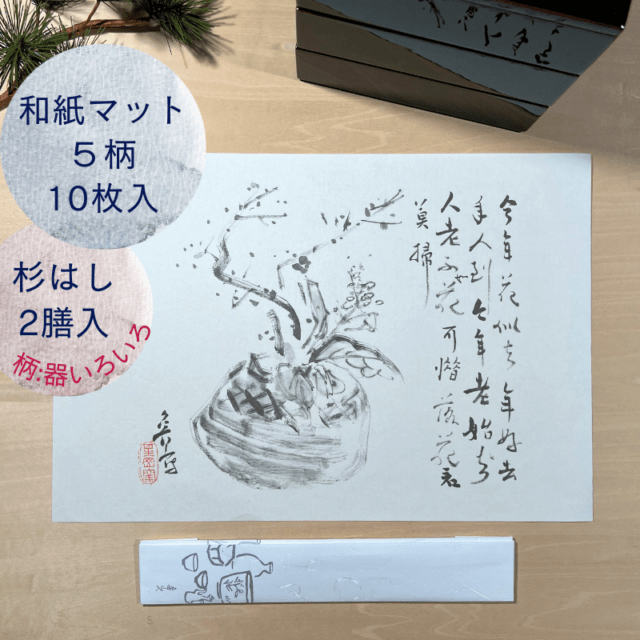 和紙マット
5柄
10枚入
杉はし
2膳入
柄:器いろいろ
今年花似去年好去
年人到今年老始知
人老不如花可惜落花君
莫掃